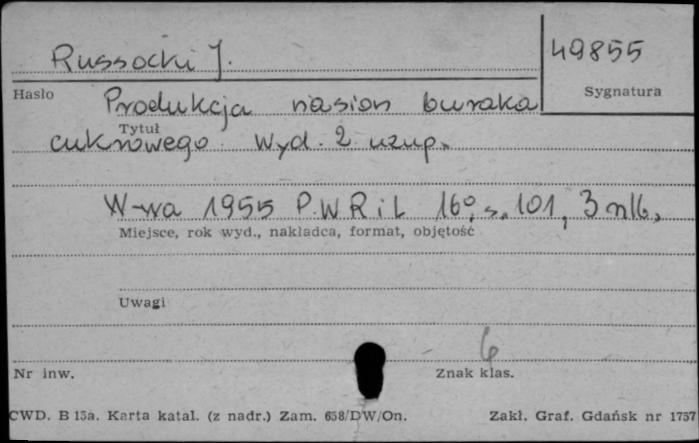 Russocki J.
49855
Hasło
Sygnatura
Produkcja nasion buraka
Tytuł
cukrowego. Wyd. 2 uzup.
W-wa 1955 P.W.R i L 16°, s. 101, 3 nlb,
Miejsce, rok wyd., nakładca, format, objętość
Uwagi
6
Nr inw.
Znak klas.
CWD. B 15a. Karta katal. (z nadr.) Zam. 658/DW/On.
Zakł. Graf. Gdańsk nr 1757